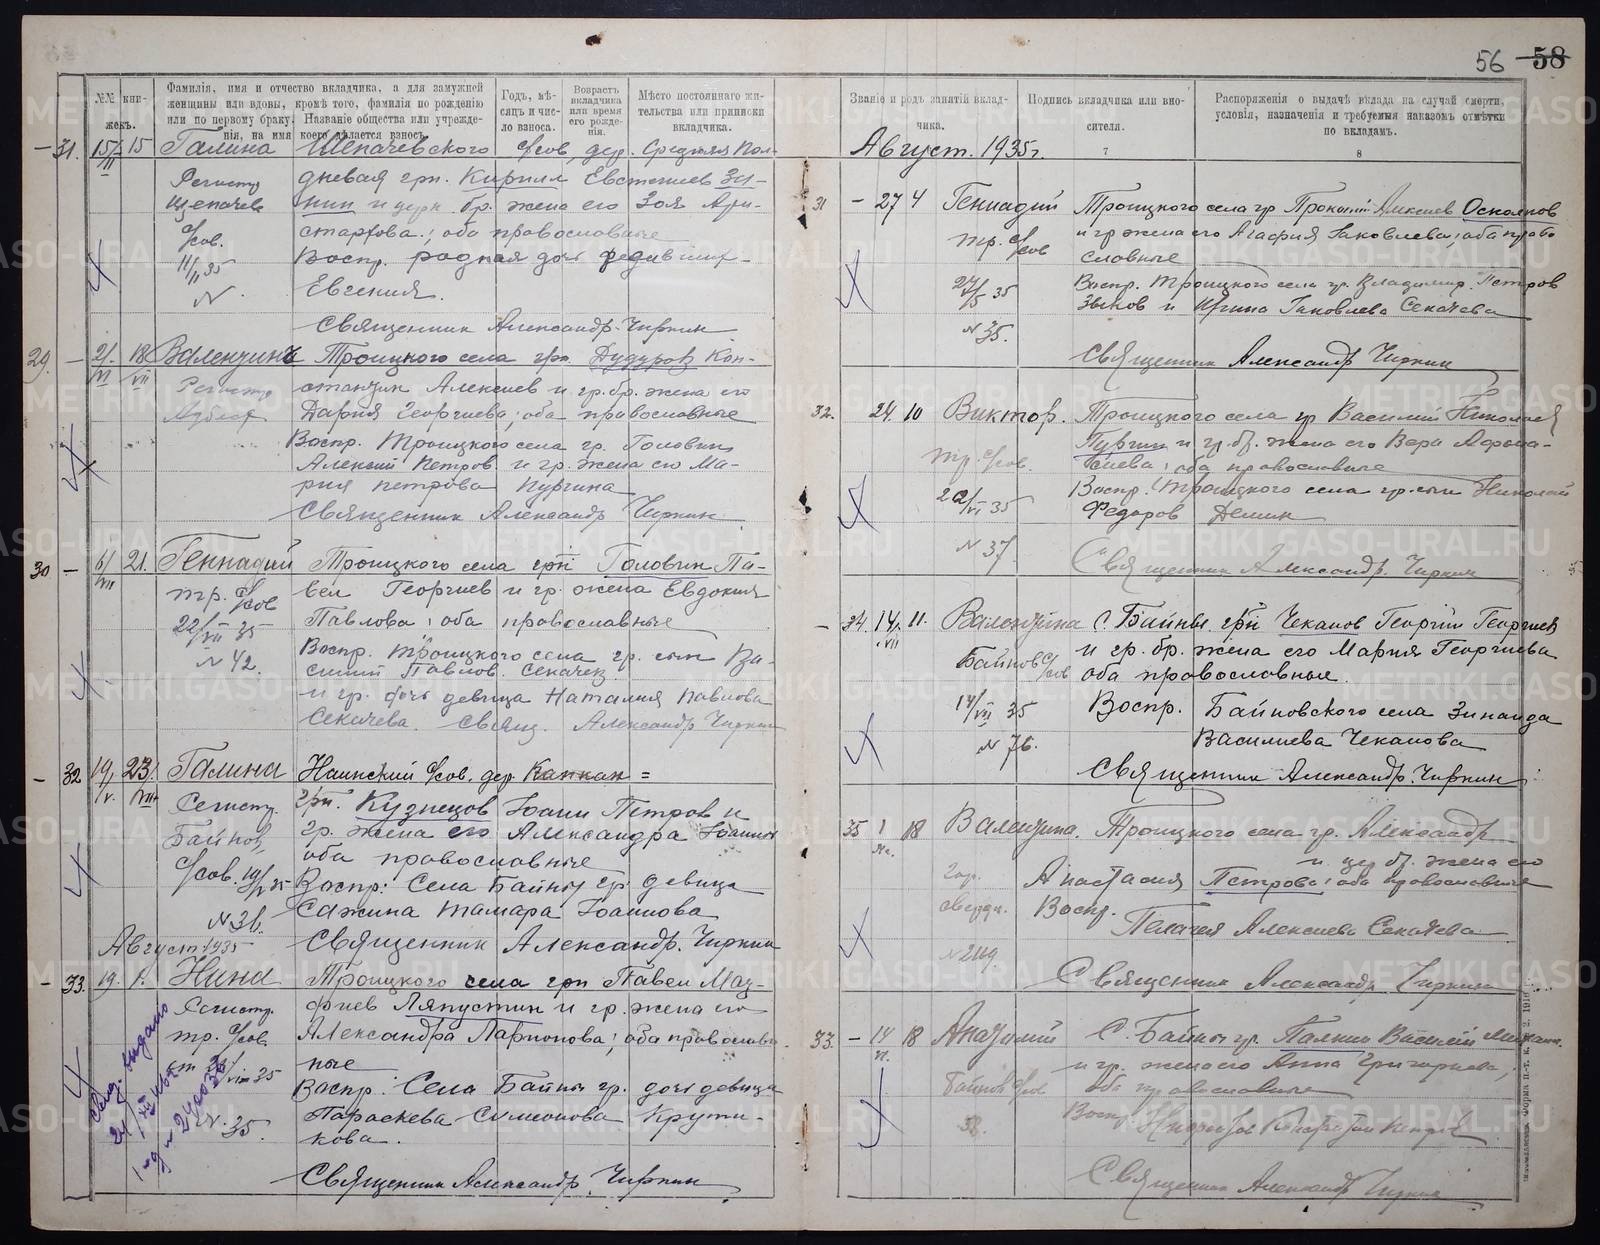 56 58
№№ книжекъ.
Фамилія, имя и отчество вкладчика, а для замужней
женщины или вдовы, кромѣ того, фамилія по рожденію
или по первому браку. Названіе общества или учрежденія, на имя коего дѣлается взносъ.
Годъ, мѣсяцъ и число взноса.
Возрастъ вкладчика или время его рожденія.
Мѣсто постояннаго жительства или приписки вкладчика.
31. 15/VI 15 Галина Щепачевского с/сов, дер. Средняя Пол-
дневая грн. Кирилл Евстениев Зи-
нин и гр. бр. жена его Зоя Ари-
стархова; оба православные
Воспр. родная дочь
Евгения.
Регистр
Щепачев
с/сов.
11/II 35
N
Священник Александр Чиркин
29. 21/VI 18/VII Валентинъ Троицкого села грн. Дудуров Кон-
стантин Алексиев и гр. бр. жена его
Дария Георгиева; оба православные
Воспр. Троицкого села гр. Головин
Алексий Петров и гр. жена его Ма-
рия Петрова Пургина
Регистр
Священник Александр Чиркин
30 6/VII 21. Геннадий Троицкого села грн Головин Па-
вел Георгиев и гр. жена Евдокия
Павлова; оба православные
Воспр. Троицкого села гр. сын Ва-
силий Павлов. Секачев
и гр. дочь девица Наталия Павлова
Секачева. Свящ. Александр Чиркин
тр. с/сов
22/VII 35
N 42.
32 19/V. 23/VII Галина Наинский с/сов. дер Капкан =
грн. Кузнецов Иоанн Петров и
гр. жена его Александра Иоаннов
оба православные
Воспр: Села Байны гр. девица
Сажина Тамара Иоаннова
Регистр.
Байнов.
с/сов. 19/V 35
N 31.
Священник Александр Чиркин
Август 1935
33. 19. 1. Нина Троицкого села грн Павел Мат-
фиев Ляпустин и гр. жена его
Александра Ларионова; оба православ-
ные
Воспр: Села Байны гр. дочь девица
Параскева Симеонова Крути-
кова.
Регистр.
тр. с/сов.
от /VIII 35
N. 35.
Священник Александр Чиркин
Званіе и родъ занятій вкладчика.
Подпись вкладчика или вносителя.
Распоряженія о выдачѣ вклада на случай смерти,
условія, назначенія и требуемыя наказомъ отмѣтки
по вкладамъ.
7
8
Август. 1935г.
31 - 27 4 Геннадий Троицкого села гр Прокопий Алексиев Осколков
и гр жена его Агафия Иаковлева; оба право
славные
Воспр. Троицкого села гр. Владимир Петров
Зыков и Ирина Иаковлева Секачева
тр. с/сов
27/5 35
N 35.
Священник Александр Чиркин
32. 24. 10 Виктор. Троицкого села гр Василий Николаев
Пургин и гр. бр. жена его Вера Афона-
сиева; оба православные
Воспр. Троицкого села гр. сын Николай
Федоров Демин
тр. с/сов.
22/VI 35
N 37.
Священник Александр Чиркин
34. 14/VII. 11. Валентина С. Байны грн Чеканов Георгий Георгиев
и гр. бр. жена его Мария Георгиева
оба православные.
Воспр. Байновского села Зинаида
Василиева Чеканова
Байнов с/сов
14/VII 35
N 76.
Священник Александр Чиркин
35 1 18 Валентина. Троицкого села гр. Александр
и гр бр. жена его
Анастасия Петрова; оба православные
Воспр.
Пелагея Алексиева Секачева
гор.
свердл.
N 2119
Священник Александр Чиркин
33. - 14 18 Анатолий С. Байны гр. Палкин Василий Михаил.
и гр. жена его Анна Григориева,
оба православные
Байнов с/сов
38.
Воспр
Священник Александр Чиркин
METRIKI.GASO-URAL.RU